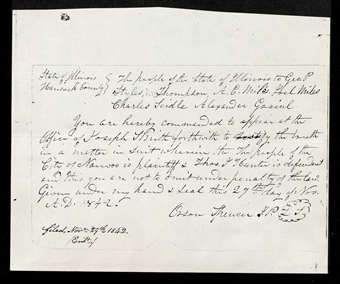 State of Illinois } The people of the State of Illinois to Geo P
Hancock County } Styles, Wm Thompson, A. E. Miles, Joel Miles
Charles Seidle Alexander
You are hereby commanded to appear at the
Office of Joseph Smith forthwith to testify the truth
in a matter in suit wherein the The people of the
City of Nauvoo is plaintiff & Thos. J Hunter is defendant
and this you are not to omit under penalty of the law
Given under my hand & Seal this 27th day of Nov.
A.D. 1842.
Orson Spencer J.P.
filed, Nov. 29th 1842.